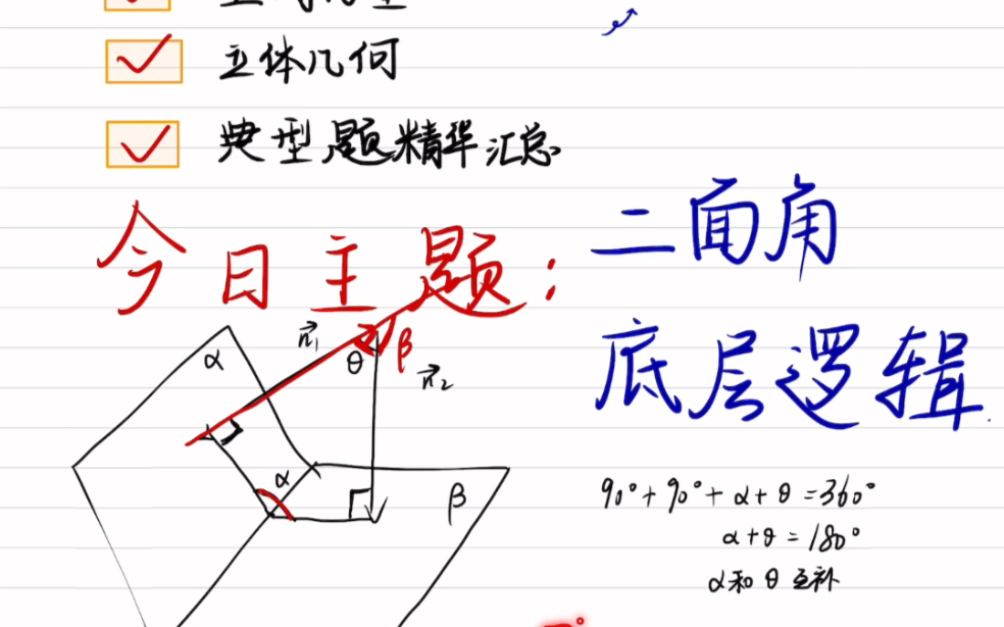 立体几何
典型题精华汇总
今日主题：
二面角
底层逻辑
α
n⃗₁
θ
β
n⃗₂
α
β
90°+90°+α+θ=360°
α+θ=180°
α和θ互补